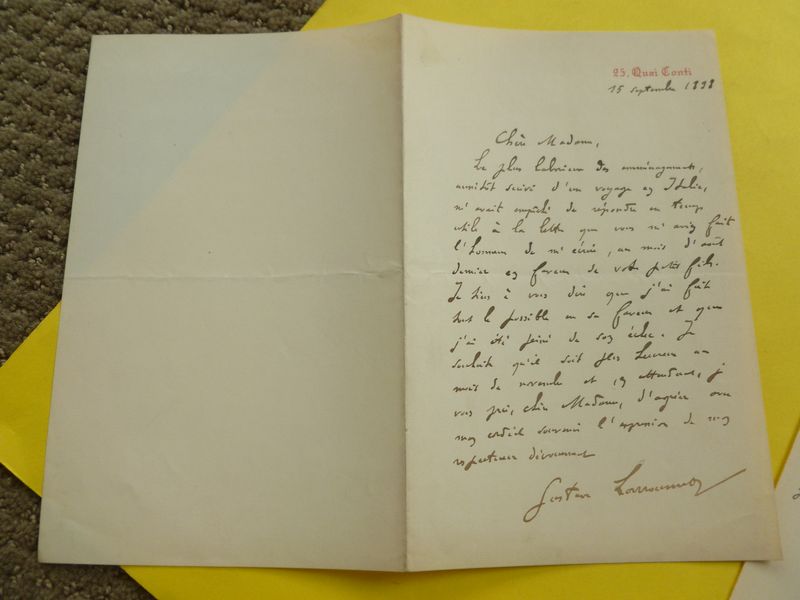 25, Quai Conti
15 septembre 1898
Chère Madame,
Le plus laborieux des emménagements,
aussitôt suivi d'un voyage en Italie,
m'avait empêché de répondre en temps
utile à la lettre que vous m'aviez fait
l'honneur de m'écrire, au mois d'août
dernier en faveur de votre petit fils.
Je tiens à vous dire que j'ai fait
tout le possible en sa faveur et que
j'ai été peiné de son échec. Je
souhaite qu'il soit plus heureux au
mois de novembre et en attendant, je
vous prie, chère Madame, d'agréer avec
mon cordial souvenir l'expression de mon
respectueux dévouement
Gustave Larroumet